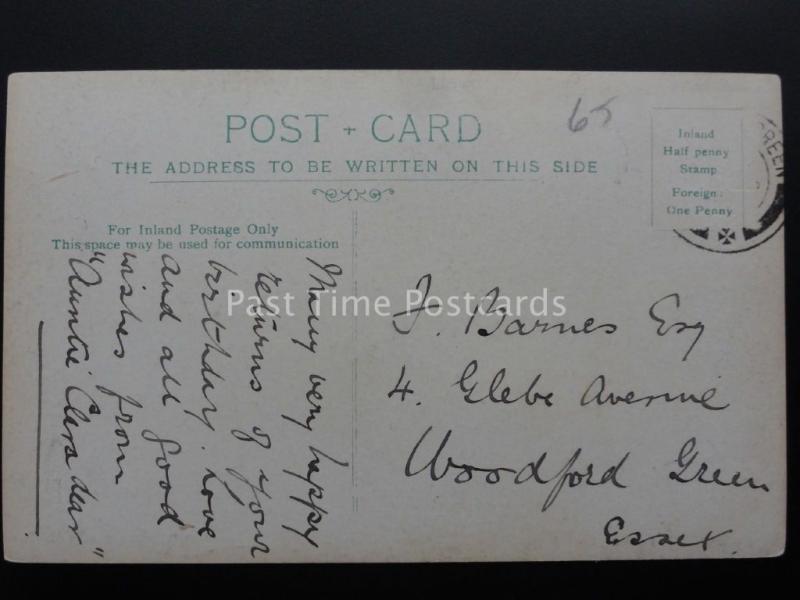 65
POST + CARD
THE ADDRESS TO BE WRITTEN ON THIS SIDE
Inland
Half penny
Stamp
Foreign:
One Penny
REEN
For Inland Postage Only
This space may be used for communication
Many very happy
returns of your
birthday. Love
and all good
wishes from
"Auntie Clera dear"
J. Barnes Esq
4. Glebe Avenue
Woodford Green
Essex.
Past Time Postcards